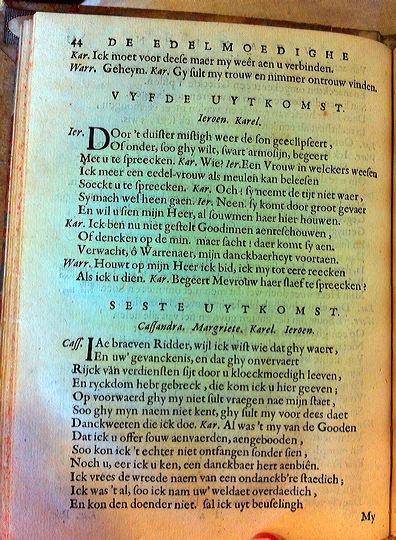 44 DE EDELMOEDIGHE
Kar. Ick moet voor deese maer my weêr aen u verbinden.
Warr. Geheym. Kar. Gy sult my trouw en nimmer ontrouw vinden.
VYFDE UYTKOMST.
Ieroen. Karel.
Ier. DOor 't duister mistigh weer de son geeclipseert,
Of onder, soo ghy wilt, swart armolijn, begeert
Met u te spreecken. Kar. Wie? Ier. Een Vrouw in welckers weesen
Ick meer een eedel-vrouw als meulen kan beleesen
Soeckt u te spreecken. Kar. Och! sy neemt de tijt niet waer,
Sy mach wel heen gaen. Ier. Neen. sy komt door groot gevaer
En wil u sien mijn Heer, al souwmen haer hier houwen.
Kar. Ick ben nu niet gestelt Goodinnen aenteschouwen,
Of dencken op de min. maer sacht! daer komt sy aen.
Verwacht, ô Warrenaer, mijn danckbaerheyt voortaen.
Warr. Houwt op mijn Heer ick bid, ick my tot eere reecken
Als ick u dien. Kar. Begeert Mevrouw haer slaef te spreecken?
SESTE UYTKOMST.
Cassandra. Margriete. Karel. Ieroen.
Cass. IAe braeven Ridder, wijl ick wist wie dat ghy waert,
En uw' gevanckenis, en dat ghy onvervaert
Rijck van verdiensten sijt door u kloeckmoedigh leeven,
En ryckdom hebt gebreck, die kom ick u hier geeven;
Op voorwaerd ghy my niet sult vraegen nae mijn staet,
Soo ghy myn naem niet kent, ghy sult my voor dees daet
Danckweeten die ick doe. Kar. Al was 't my van de Gooden
Dat ick u offer souw aenvaerden, aengebooden,
Soo kon ick 't echter niet ontfangen sonder sien,
Noch u, eer ick u ken, een danckbaer hert aenbiên.
Ick vrees de wreede naem van een ondanckb're staedich;
Ick was 't al, soo ick nam uw' weldaet overdaedich,
En kon den doender niet. sal ick uyt beuselingh
My